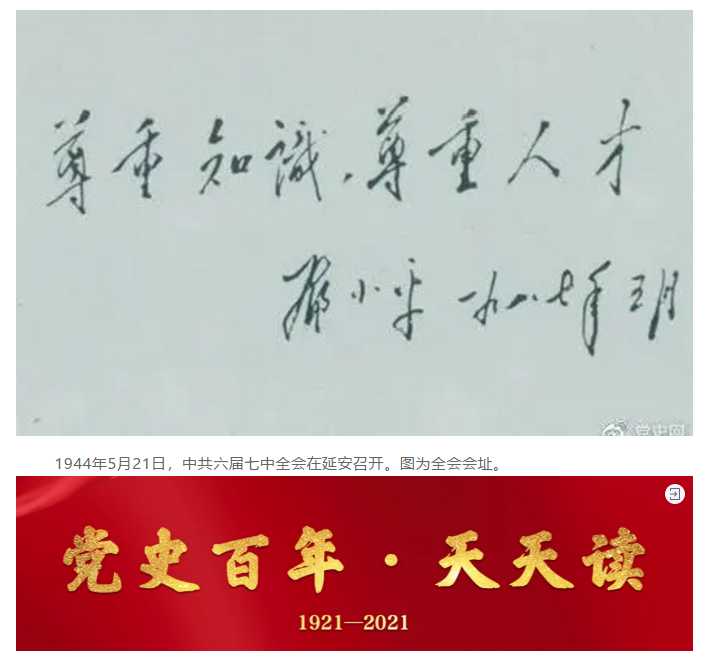 尊重知識,尊重人才
鄧小平 一九八七年五月
党史网
1944年5月21日，中共六届七中全会在延安召开。图为全会会址。
党史百年·天天读
1921—2021